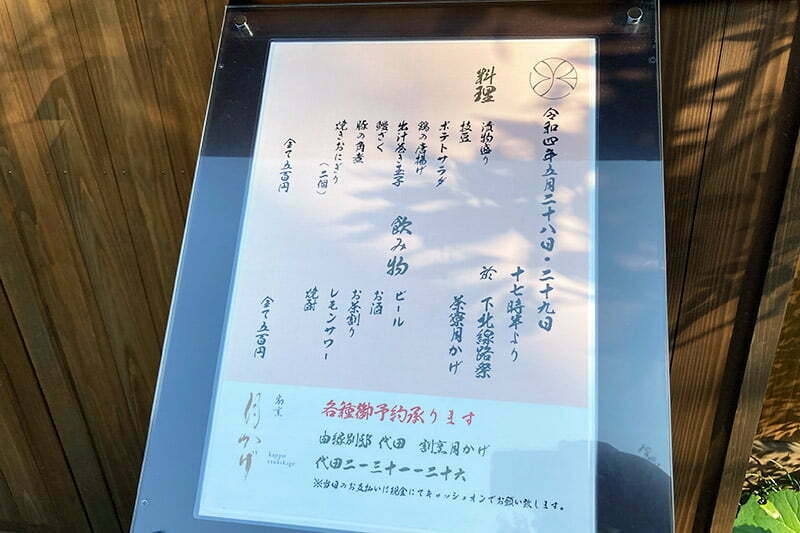 令和四年五月二十八日・二十九日
十七時半より
於 下北線路祭
茶寮月かげ
料理
漬物盛り
枝豆
ポテトサラダ
鶏の唐揚げ
出汁巻き玉子
鰻ざく
豚の角煮
焼きおにぎり（二個）
全て五百円
飲み物
ビール
お酒
お茶割り
レモンサワー
焼酎
全て五百円
各種御予約承ります
由縁別邸 代田 割烹月かげ
代田二ー三十一ー二十六
※当日のお支払いは現金にてキャッシュオンでお願い致します。
割烹
月かげ
kappo
tsukikage